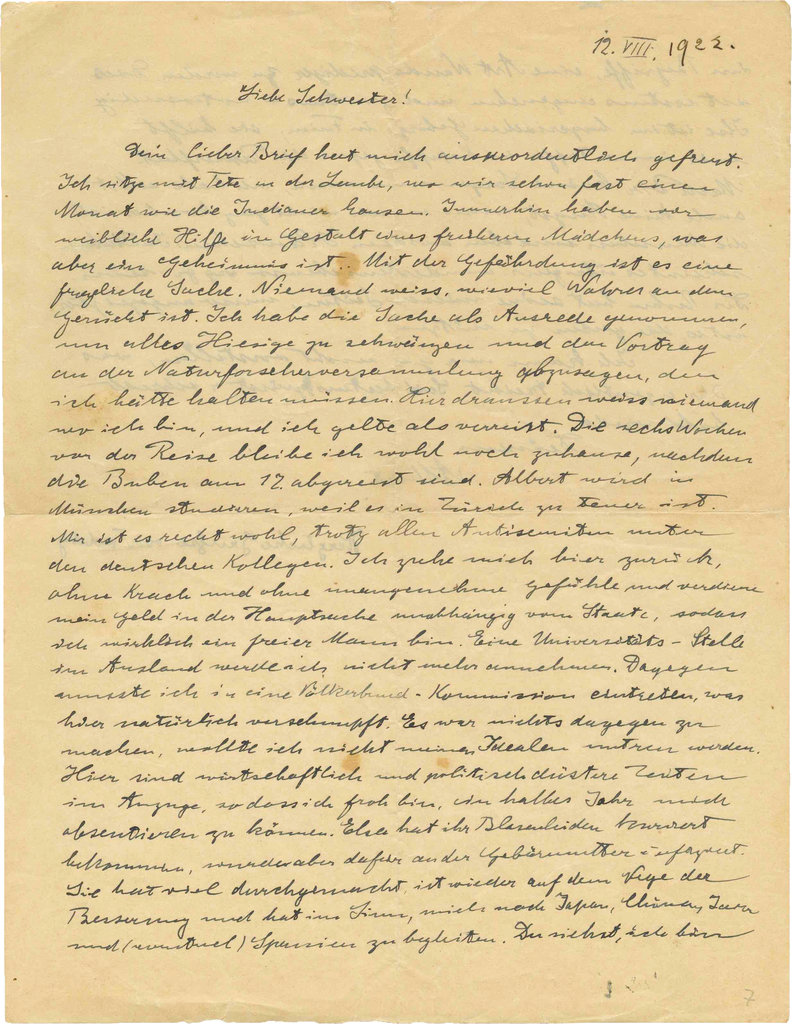 12. VIII. 1922.
Liebe Schwester!
Dein lieber Brief hat mich ausserordentlich gefreut.
Ich sitze mit Tete in der Laube, wo wir schon fast einen
Monat wie die Indianer hausen. Immerhin haben wir
weibliche Hilfe in Gestalt eines früheren Mädchens, was
aber ein Geheimnis ist. Mit der Gefährdung ist es eine
fragliche Sache. Niemand weiss, wieviel Wahres an dem
Gerücht ist. Ich habe die Sache als Ausrede genommen,
um alles Hiesige zu schwänzen und den Vortrag
an der Naturforscherversammlung abzusagen, den
ich hätte halten müssen. Hier draussen weiss niemand
wo ich bin, und ich gelte als verreist. Die sechs Wochen
vor der Reise bleibe ich wohl noch zuhause, nachdem
die Buben am 17. abgereist sind. Albert wird in
München studieren, weil es in Zürich zu teuer ist.
Mir ist es recht wohl, trotz allen Antisemiten unter
den deutschen Kollegen. Ich ziehe mich hier zurück,
ohne Krach und ohne unangenehme Gefühle und verdiene
mein Geld in der Hauptsache unabhängig vom Staate, sodass
ich wirklich ein freier Mann bin. Eine Universitäts-Stelle
im Ausland werde ich nicht mehr annehmen. Dagegen
musste ich in eine Völkerbund-Kommission eintreten, was
hier natürlich verschnupft. Es war nichts dagegen zu
machen, wollte ich nicht meinen Idealen untreu werden.
Hier sind wirtschaftlich und politisch düstere Zeiten
im Anzuge, sodass ich froh bin, ein halbes Jahr mich
absentieren zu können. Elsa hat ihr Blasenleiden
bekommen, wurde aber dafür an der Gebärmutter
Sie hat viel durchgemacht, ist wieder auf dem Wege der
Besserung und hat im Sinn, mich nach Japan, China, Java
und (eventuel) Spanien zu begleiten. Du siehst, ich bin
7